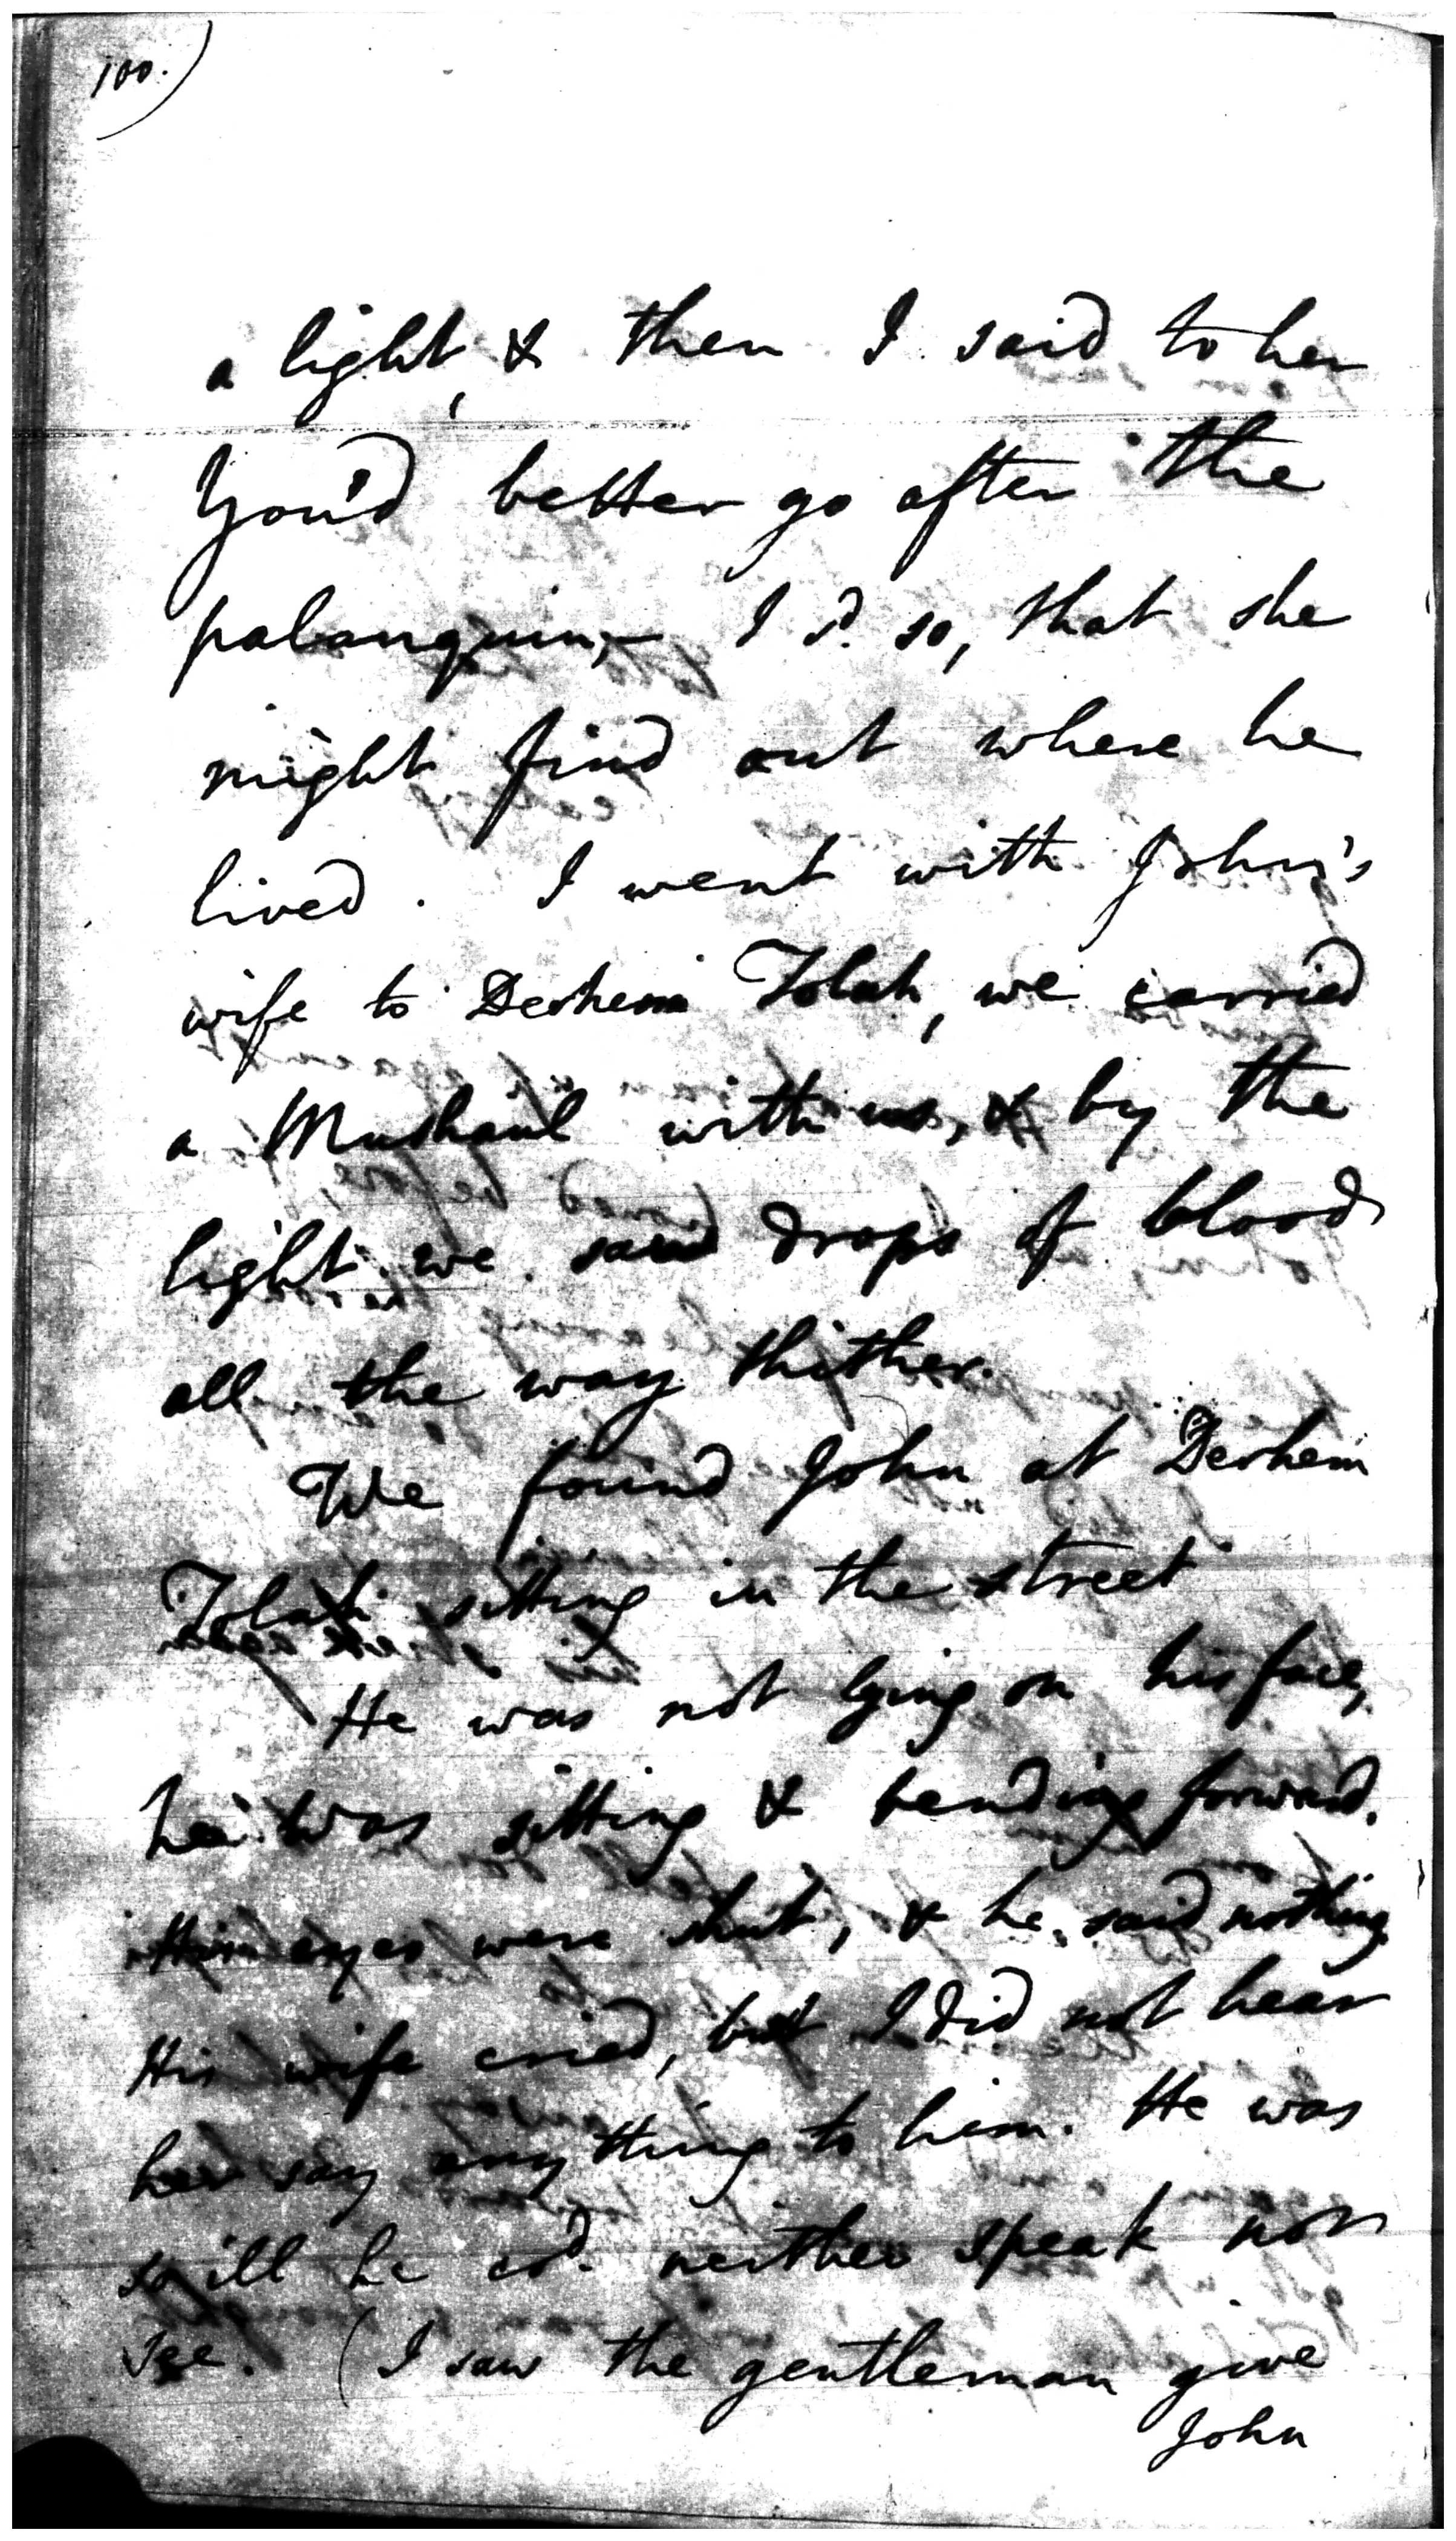 100.)
a light, & then I said to her
You'd better go after the
palanquin,— I sd. so, that she
might find out where he
lived. I went with John's
wife to Derhem Tolah, we carried
a Mushaul with us, & by the
light we saw drops of blood
all the way thither.
We found John at Derhem
Tolah sitting in the street
He was not lying on his face,
he was sitting & bending forward.
His eyes were shut, & he said nothing
His wife cried, but I did not hear
her say any thing to him. He was
so ill he cd. neither speak nor
see. (I saw the gentleman give
John